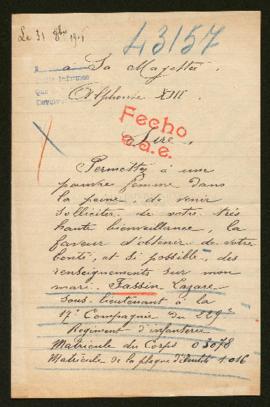 Le 31 8bre
43157
a Sa Majesté
Alphonse XIII
Fecho
Sire,
Permettez à une
pauvre femme dans
la peine, de venir
solliciter de votre très
haute bienveillance, la
faveur d'obtenir de votre
bonté, et si possible, des
renseignements sur mon
mari. Fassin Lazare
Sous-lieutenant à la
17e Compagnie du 229e
Regiment d'infanterie
Matricule du Corps 03078
Matricule de la plaque d'identité 1.016